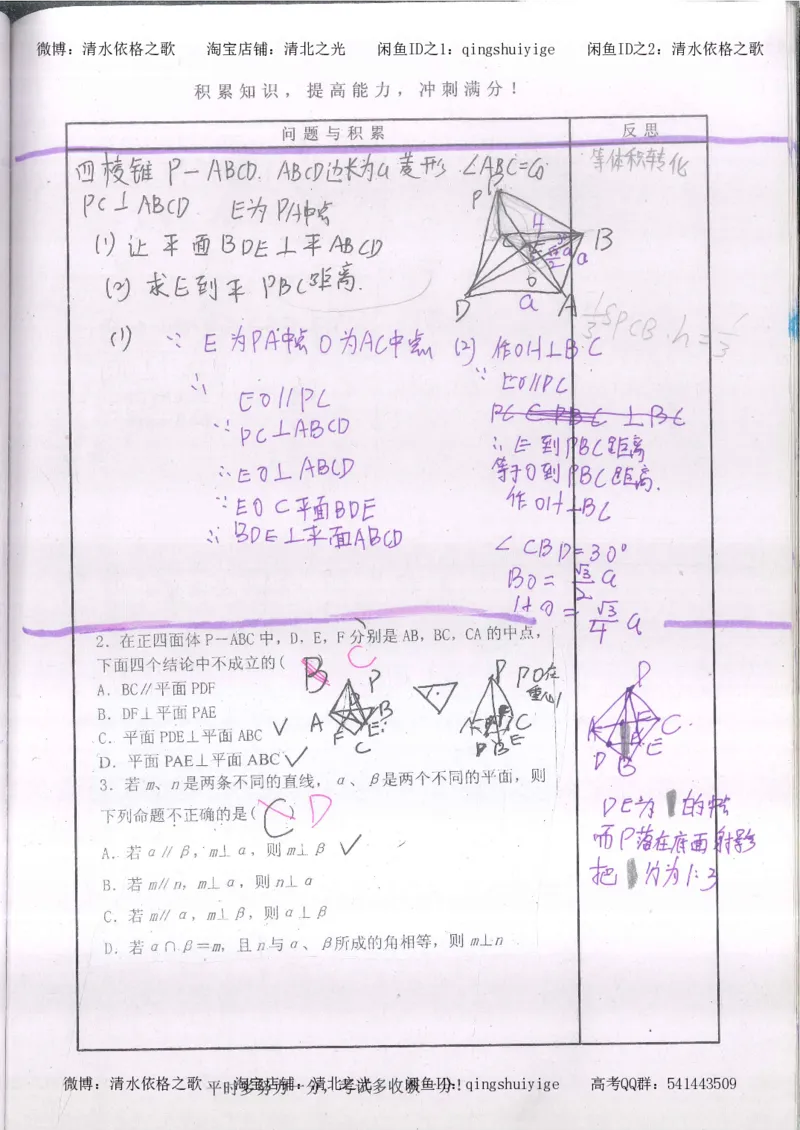 微博：清水依格之歌 淘宝店铺：清北之光 闲鱼ID之1：qingshuiyige 闲鱼ID之2：清水依格之歌
积累知识，提高能力，冲刺满分！
问题与积累 反思
四棱锥 P-ABCD. ABCD边长为a菱形 ∠ABC=60°
等体积转化
PC⊥ABCD E为PA中点
(1) 让平面BDE⊥平ABCD
(2) 求E到平PBC距离.
P
H
C
B
E
√3/2 a
a
O
D
a
A
1/3 S PCB · h = 1/3
(1) ∵ E为PA中点 O为AC中点
∴ EO//PC
∵ PC⊥ABCD
∴ EO⊥ABCD
∵ EO⊂平面BDE
∴ BDE⊥平面ABCD
(2) 作OH⊥BC
∵ EO//PC
∴ E到PBC距离
等于O到PBC距离.
作OH⊥BC
∠CBD=30°
BO= √3/2 a
HO= √3/4 a
2. 在正四面体P—ABC中，D，E，F分别是AB，BC，CA的中点，
下面四个结论中不成立的( ) B C
A. BC∥平面PDF
B. DF⊥平面PAE
C. 平面PDE⊥平面ABC √
D. 平面PAE⊥平面ABC √
P
A
B
F
E
C
P
PO在
重心
A
C
D
B
E
P
A
F
C
E
D
B
DE为 的中点
而P落在底面射影
把 分为1:3
3. 若m、n是两条不同的直线，α、β是两个不同的平面，则
下列命题不正确的是( ) C D
A. 若α∥β，m⊥α，则m⊥β √
B. 若m∥n，m⊥α，则n⊥α
C. 若m∥α，m⊥β，则α⊥β
D. 若α∩β＝m，且n与α、β所成的角相等，则m⊥n
平时多努力一分，考试多收获一分！
微博：清水依格之歌 淘宝店铺：清北之光 闲鱼ID：qingshuiyige 高考QQ群：541443509